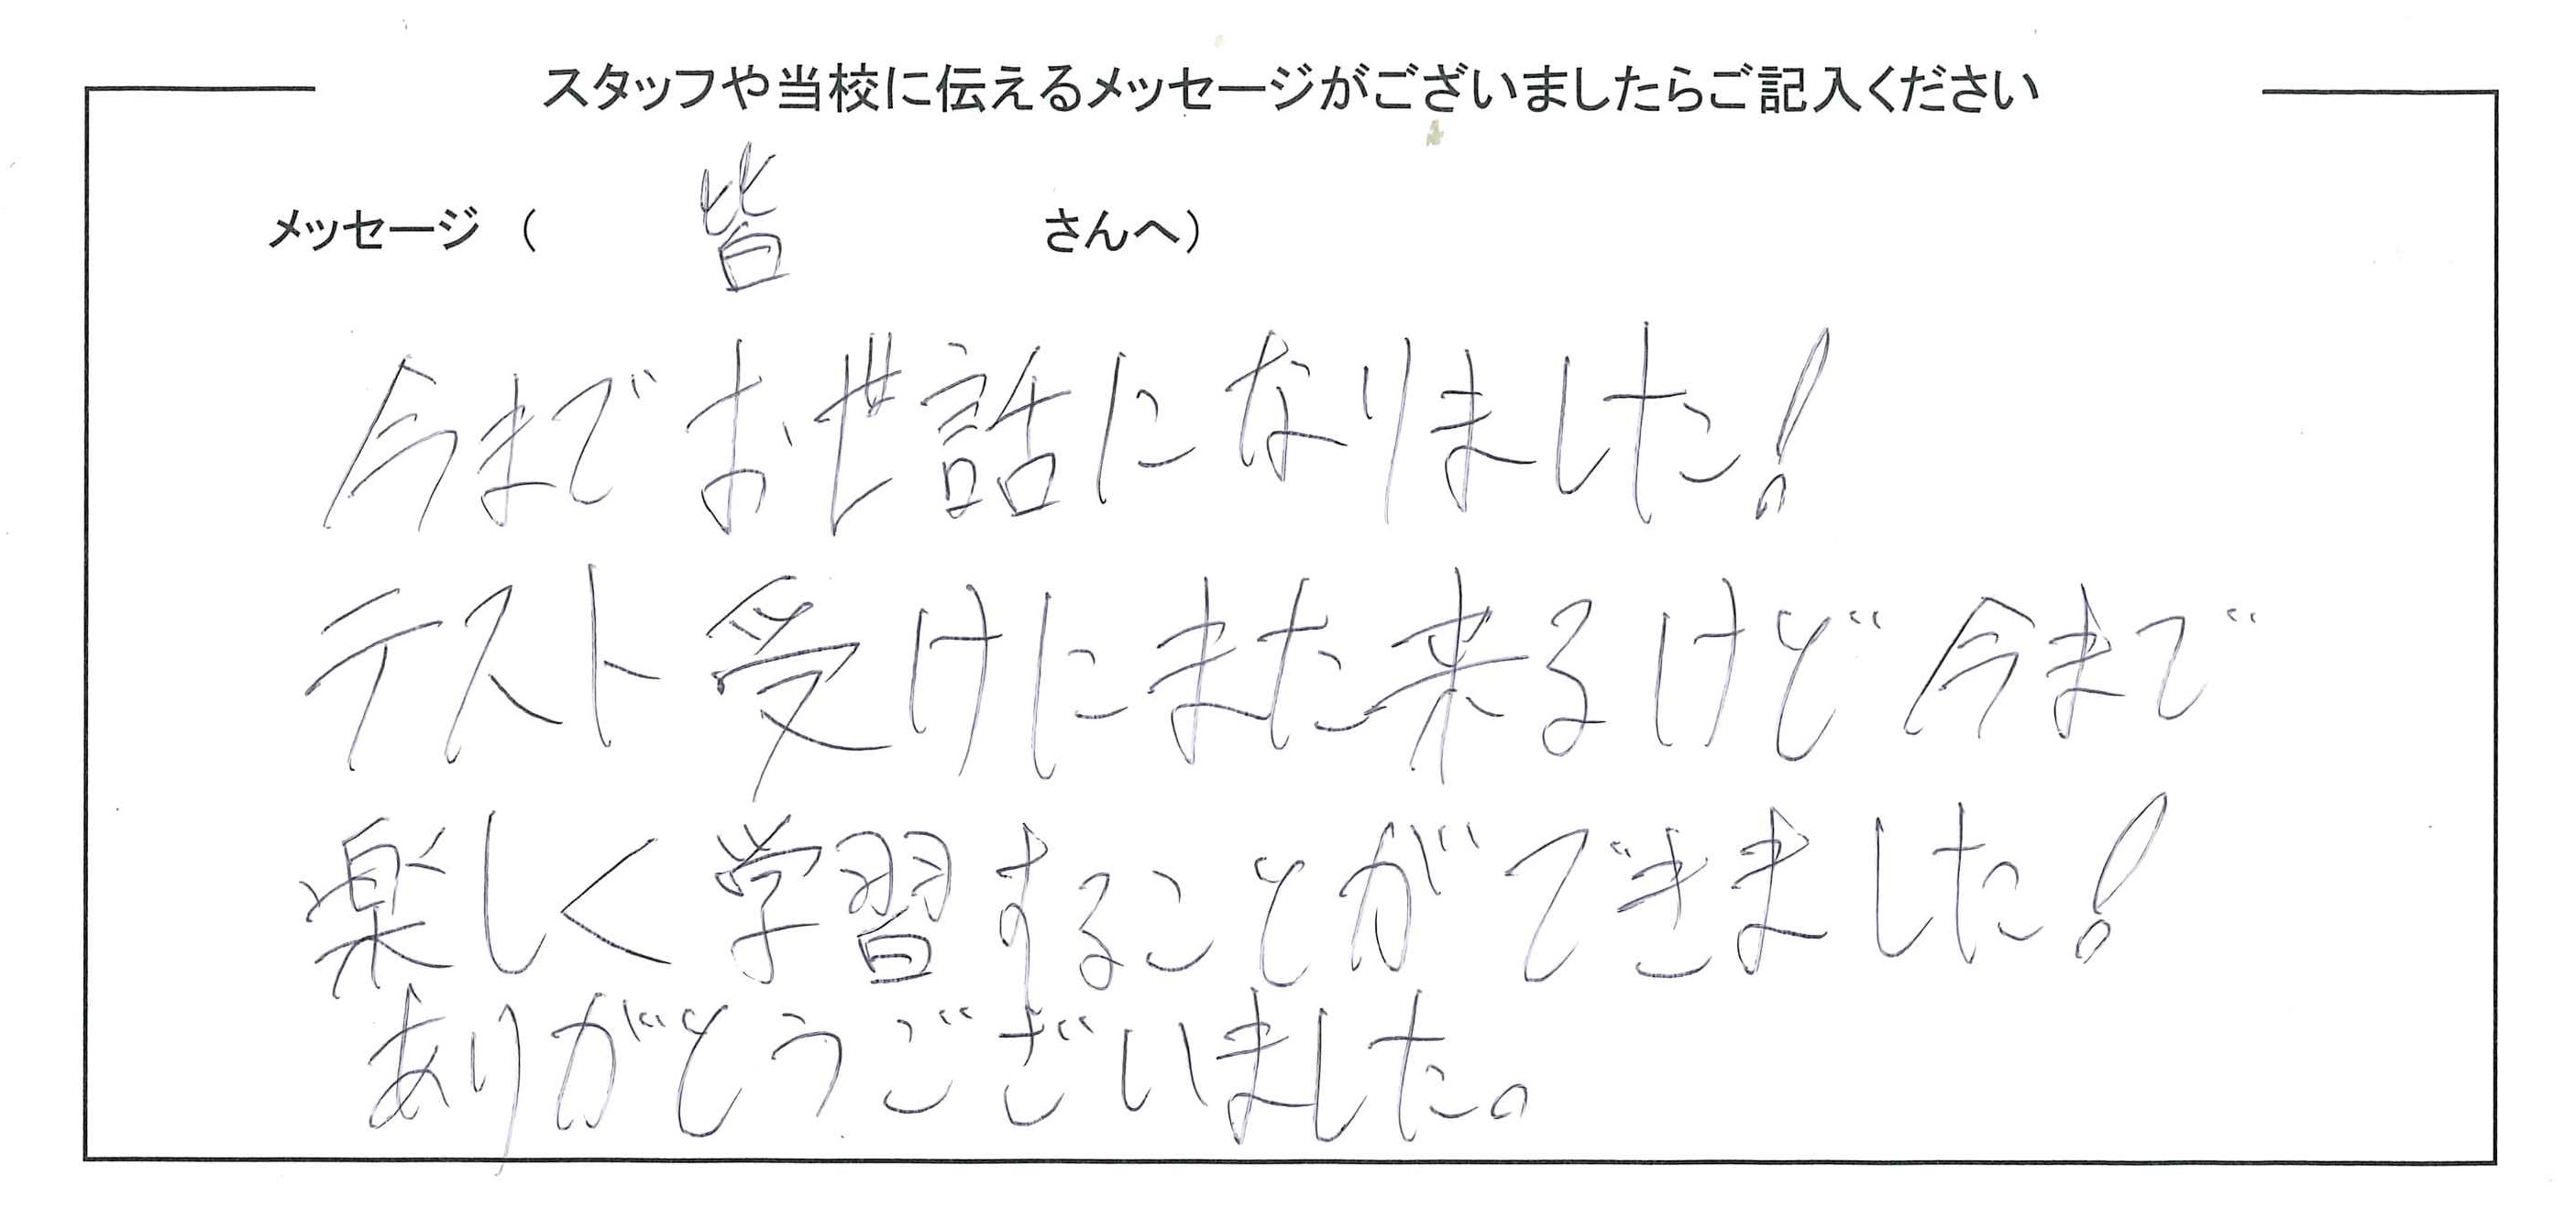 スタッフや当校に伝えるメッセージがございましたらご記入ください
メッセージ（ 皆 さんへ）
今までお世話になりました!
テスト受けにまた来るけど今まで
楽しく学習することができました!
ありがとうございました。